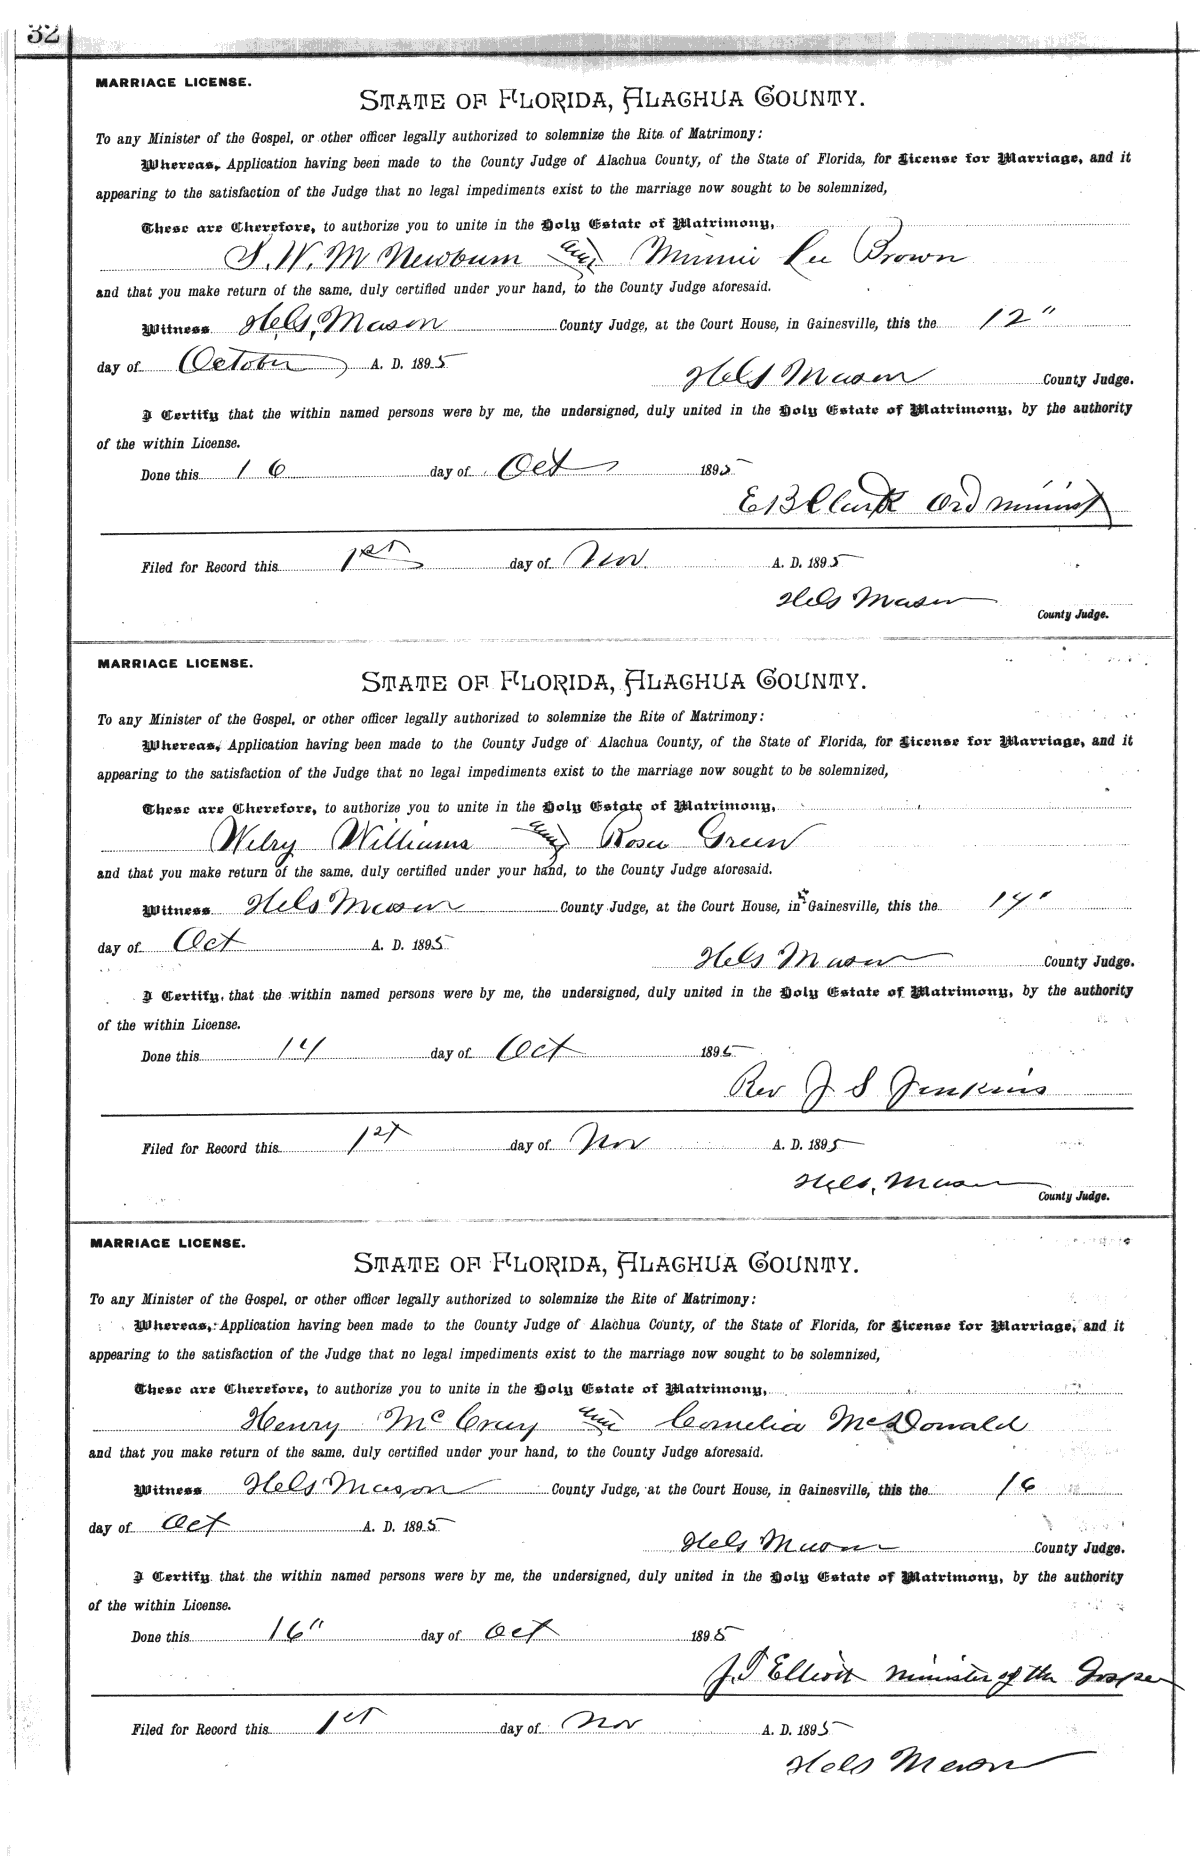 32
MARRIAGE LICENSE.
STATE OF FLORIDA, ALACHUA COUNTY.
To any Minister of the Gospel, or other officer legally authorized to solemnize the Rite of Matrimony:
Whereas, Application having been made to the County Judge of Alachua County, of the State of Florida, for License for Marriage, and it
appearing to the satisfaction of the Judge that no legal impediments exist to the marriage now sought to be solemnized,
These are Therefore, to authorize you to unite in the Holy Estate of Matrimony,
S. W. M Newburn and Minnie Lee Brown
and that you make return of the same, duly certified under your hand, to the County Judge aforesaid.
Witness Hels, Mason County Judge, at the Court House, in Gainesville, this the 12"
day of October A. D. 1895
Hels Mason County Judge.
I Certify that the within named persons were by me, the undersigned, duly united in the Holy Estate of Matrimony, by the authority
of the within License.
Done this 16 day of Oct 1895
E B Clark Ord minist
Filed for Record this 1st day of Nov A. D. 1895
Hels Mason
County Judge.
MARRIAGE LICENSE.
STATE OF FLORIDA, ALACHUA COUNTY.
To any Minister of the Gospel, or other officer legally authorized to solemnize the Rite of Matrimony:
Whereas, Application having been made to the County Judge of Alachua County, of the State of Florida, for License for Marriage, and it
appearing to the satisfaction of the Judge that no legal impediments exist to the marriage now sought to be solemnized,
These are Therefore, to authorize you to unite in the Holy Estate of Matrimony,
Welry Williams and Rosa Green
and that you make return of the same, duly certified under your hand, to the County Judge aforesaid.
Witness Hels Mason County Judge, at the Court House, in Gainesville, this the 14"
day of Oct A. D. 1895
Hels Mason County Judge.
I Certify, that the within named persons were by me, the undersigned, duly united in the Holy Estate of Matrimony, by the authority
of the within License.
Done this 14 day of Oct 1895
Rev J S Jenkins
Filed for Record this 1st day of Nov A. D. 1895
Hels, Mason
County Judge.
MARRIAGE LICENSE.
STATE OF FLORIDA, ALACHUA COUNTY.
To any Minister of the Gospel, or other officer legally authorized to solemnize the Rite of Matrimony:
Whereas, Application having been made to the County Judge of Alachua County, of the State of Florida, for License for Marriage, and it
appearing to the satisfaction of the Judge that no legal impediments exist to the marriage now sought to be solemnized,
These are Therefore, to authorize you to unite in the Holy Estate of Matrimony,
Henry McCray and Cornelia McDonald
and that you make return of the same, duly certified under your hand, to the County Judge aforesaid.
Witness Hels Mason County Judge, at the Court House, in Gainesville, this the 16
day of Oct A. D. 1895
Hels Mason County Judge.
I Certify that the within named persons were by me, the undersigned, duly united in the Holy Estate of Matrimony, by the authority
of the within License.
Done this 16" day of Oct 1895
J. T Elliott minister of the Gospel
Filed for Record this 1st day of Nov A. D. 1895
Hels Mason